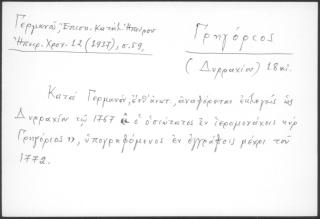 Γερμανοῦ, Ἐπισκ. Κατάλ. Ἠπείρου
Ἠπειρ. Χρον. 12 (1937), σ. 59,
Γρηγόριος
(Δυρραχίου) 18 αἰ.
Κατὰ Γερμανόν, ἔνθ' ἀνωτ., ἀναφέρεται ἐκλογεὺς ὡς
Δυρραχίου τῷ 1767 ὁ ὁσιώτατος ἐν ἱερομονάχοις κὺρ
Γρηγόριος», ὑπογραφόμενος ἐν ἐγγράφοις μέχρι τοῦ
1772.